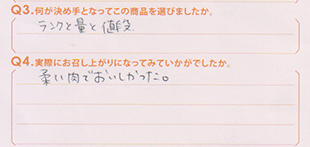 Q3.何が決め手となってこの商品を選びましたか。
ランクと量と値段
Q4.実際にお召し上がりになってみていかがでしたか。
柔い肉でおいしかった。